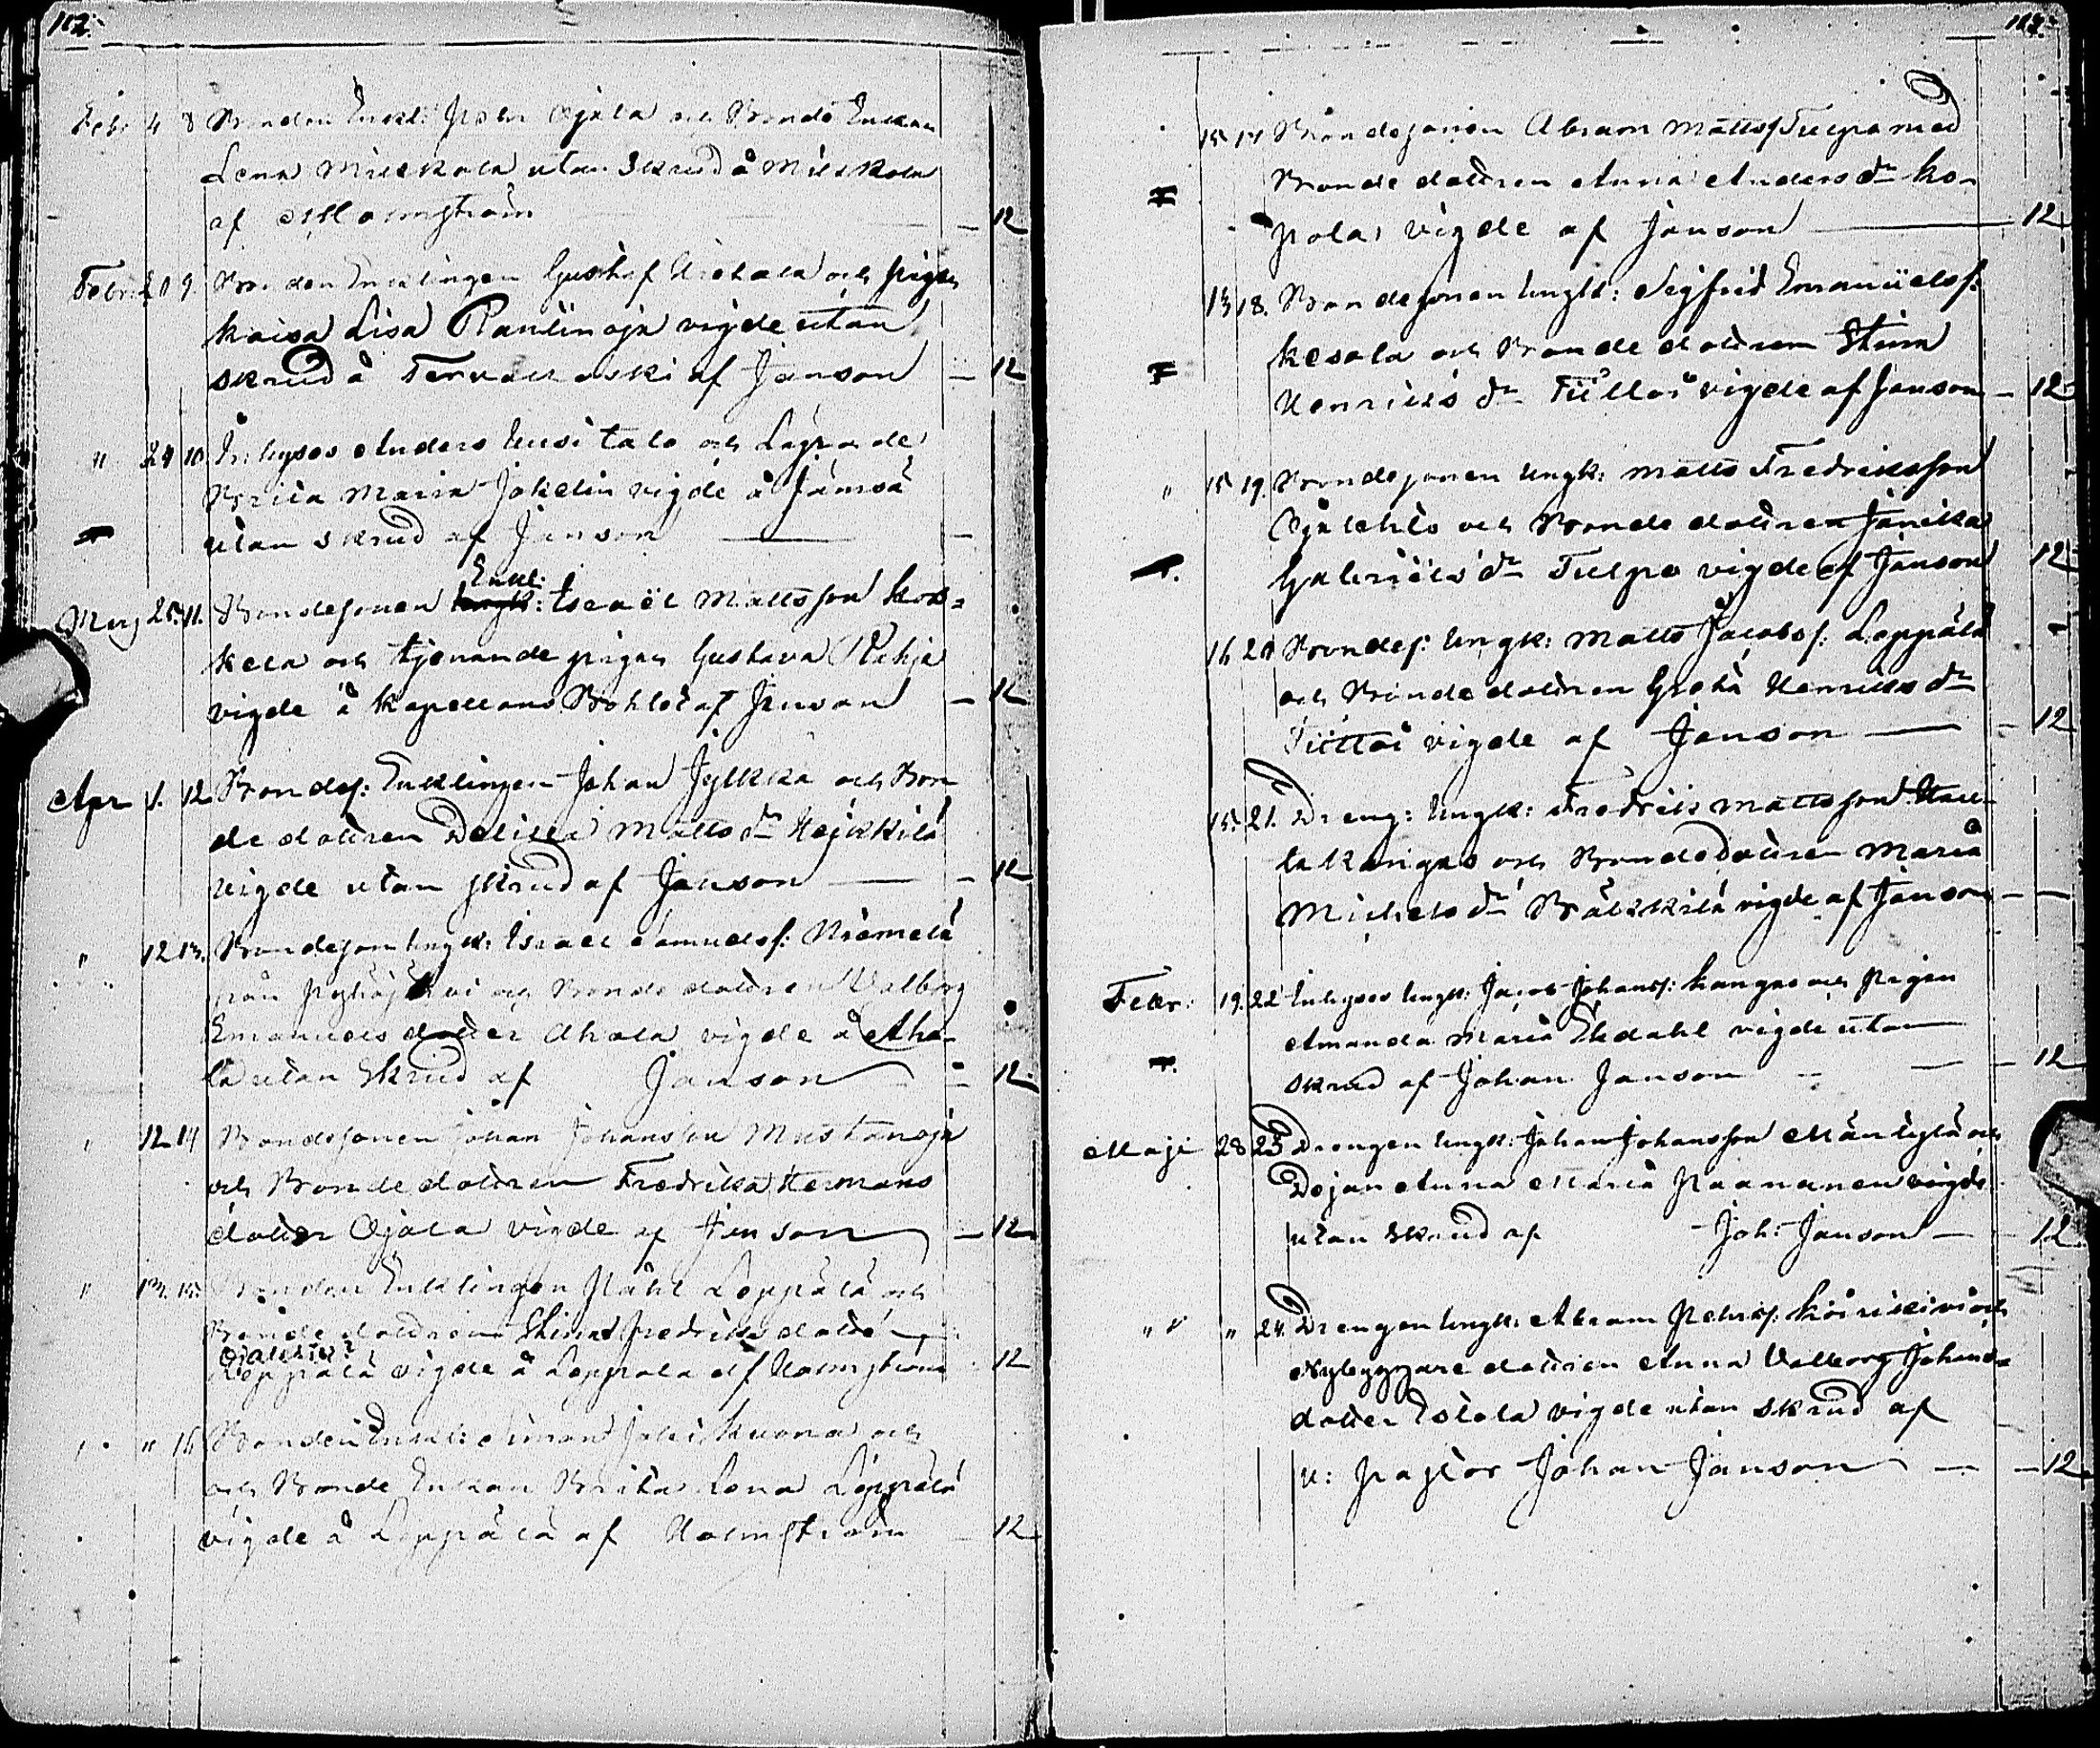 112.
Febr 4 8 Bonden Enkl: Petr Ojala och Bonde Enkan
Lena Mieskola utan Skrud å Mieskola
af Holmström — 12
Febr: 20 9. Bonden Enklingen Gustaf och pigan
Kaisa Lisa Raulinoja vigde utan
skrud å Tervakoski af Janson — 12
" 24 10. Inhyses Anders Uusitalo och
Brita Maria Jokelin vigde å Jämsä
utan skrud af Janson —
Marj 25. 11. Bondesonen Enkl: Israël Mattsson Kos=
kela och tjenande pigan Gustava Rahja
vigde å Kapellans Bohlet af Janson — 12
Apr 1. 12. Bondes: Enklingen Johan Jylkkä och Bon
de dottren Matts dr Hejkkilä
vigde utan skrud af Janson — 12
" 12 13. Bondeson Ungk: Israel Samuels: Niemelä
från Pyhäjoki och Bonde dottren Valborg
Emanuels dotter Ahola vigde å Aho-
la utan Skrud af Janson — 12.
" 12 14 Bondesonen Johan Johansson Mustanoja
och Bonde dottren Fredrika Hermans
dotter Ojala vigde af Janson — 12
" 13. 15. Bonden Enklingen Påhl Leppälä och
Bonde dottren Stina Fredriks dotter
Leppälä vigde å Leppälä af Holmström 12
" " 16 Bonden Enkl: Simon och
och Bonde Enkan Brita Lena Leppälä
vigde å Leppälä af Holmström — 12
15 17 Bondesonen Abram Matts Tulpo med
Bonde dottren Anna Anders dr Ko-
pola vigde af Janson — 12
13 18. Bondesonen Ungk: Sigfrid Emanuels:
Kesola och Bonde dottren Stina
Henriks dr vigde af Janson — 12
" 15 19. Bondesonen Ungk: Matts Fredriksson
Ojalehto och Bonde dottren
Gabriels dr Tulpo vigde af Janson 12
16 20 Bondes: Ungk: Matts Jacobs: Leppälä
och Bonde dottren Greta Henriks dr
vigde af Janson — 12
15. 21. Dreng: Ungk: Fredrik Mattsson Hau-
takangas och Bonde dottren Maria
Michels dr vigde af Janson —
Febr: 19. 22 Inhyses Ungk: Jacob Johans: Kangas och pigan
Amanda Maria Ekdahl vigde utan
skrud af Johan Janson — 12
Maji 28 23 Drengen Ungk: Johan Johansson Mäntylä och
Dejan Anna Maria Paananen vigde
utan skrud af Joh: Janson — 12
" " " 24. Drengen Ungk: Abram Petris: och
Nybyggare dottren Anna Valborg Johans=
dotter Estola vigde utan skrud af
v: pastor Johan Janson — 12